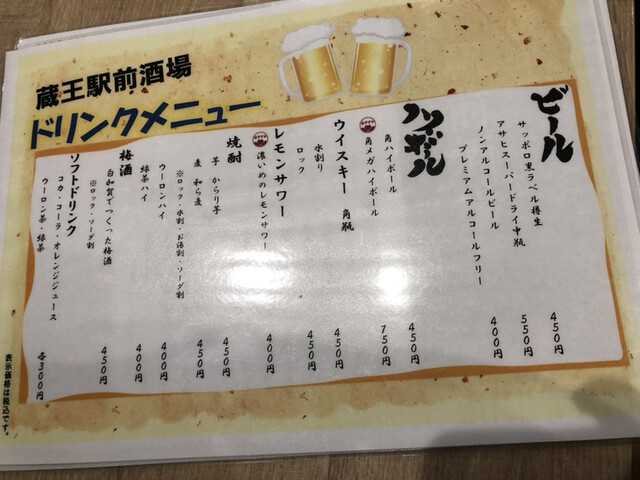 蔵王駅前酒場
ドリンクメニュー
ビール
サッポロ黒ラベル樽生 450円
アサヒスーパードライ中瓶 550円
ノンアルコールビール
プレミアムアルコールフリー 400円
ハイボール
角ハイボール 450円
角メガハイボール 750円
ウイスキー 角瓶
水割り 450円
ロック 450円
レモンサワー
濃いめのレモンサワー 400円
焼酎
芋 からり芋 450円
麦 和ら麦 450円
※ロック・水割・お湯割・ソーダ割
ウーロンハイ 400円
緑茶ハイ 400円
梅酒
白加賀でつくった梅酒 450円
※ロック・ソーダ割
ソフトドリンク
コカ・コーラ・オレンジジュース
ウーロン茶・緑茶 各300円
表示価格は税込です。